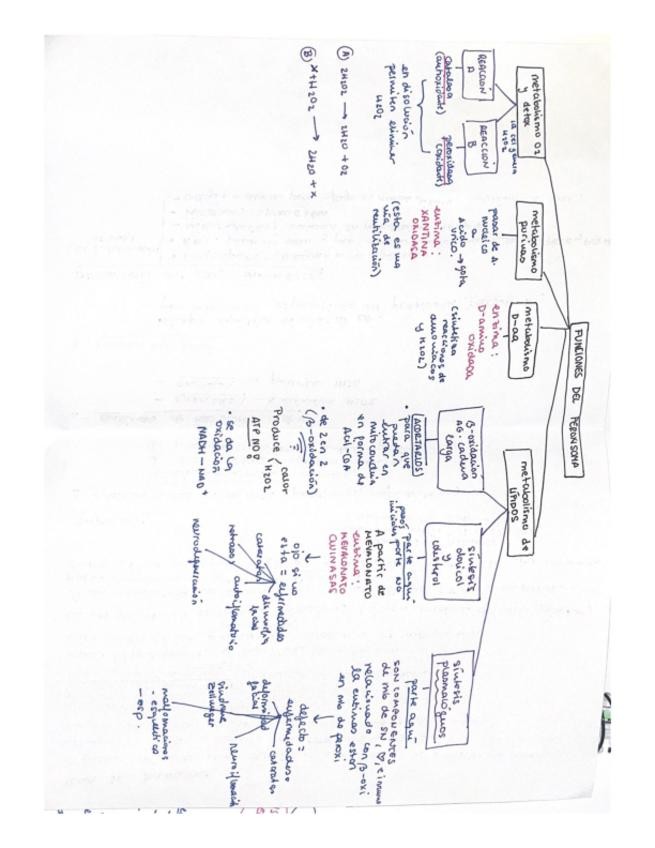 FUNCIONES DEL PEROXISOMA
metabolismo O2
y detox
la cel genera
H2O2
REACCION
A
REACCION
B
catalasa
(autoxidante)
peroxidasa
(oxidante)
en disolución
permiten eliminar
H2O2
(A) 2H2O2 → 2H2O + O2
(B) X + H2O2 → 2H2O + X
metabolismo
purinas
pasar de A.
nucleico
a
Ácido → gota
úrico
enzima:
XANTINA
OXIDASA
(esto es una
vía de
reutilización)
metabolismo
D-aa
enzima:
D-amino
oxidasa
(sintetiza
reacciones de
amoniacos
y H2O2)
metabolismo de
LÍPIDOS
β-oxidación
AG. cadena
larga
(ACORTARLOS)
• para que
puedan
entrar en
mitocondria
en forma de
Acil-CoA
• de 2 en 2
(β-oxidación)
Produce calor
H2O2
ATP NO
• se da la
oxidación
NADH - NAD+
síntesis
y
dolicol
colesterol
parte aquí
parte no
pasos
iniciales
A partir de
MEVALONATO
enzima:
MEVALONATO
QUINASAS
ojo si no
esta = enfermedades
cataratas
retraso
autoinflamatorio
neurodegeneración
síntesis
plasmalógenos
parte aquí
SON COMPONENTES
de mb de SN, ♡, e inmune
relacionado con β-oxi
la enzimas están
en mb de peroxi
defecto =
enfermedades
cataratas
deformidad
facial
síndrome
zellweger
malformaciones
- esqueléticas
- esp.